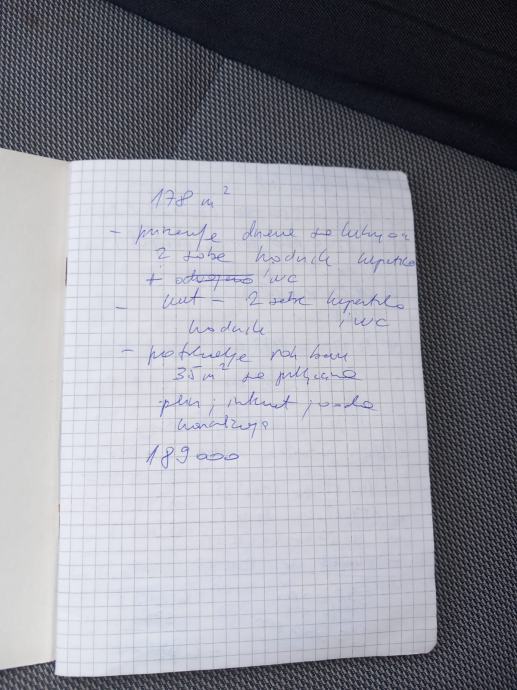 178 m²
- prizemlje dnevna sa kuhinjom
2 sobe hodnik kupatilo
+ odvojeno i WC
- kat - 2 sobe kupatilo
hodnik i WC
- potkrovlje roh bau
35 m² sa priključcima
plin, internet, voda
kanalizacija
189000